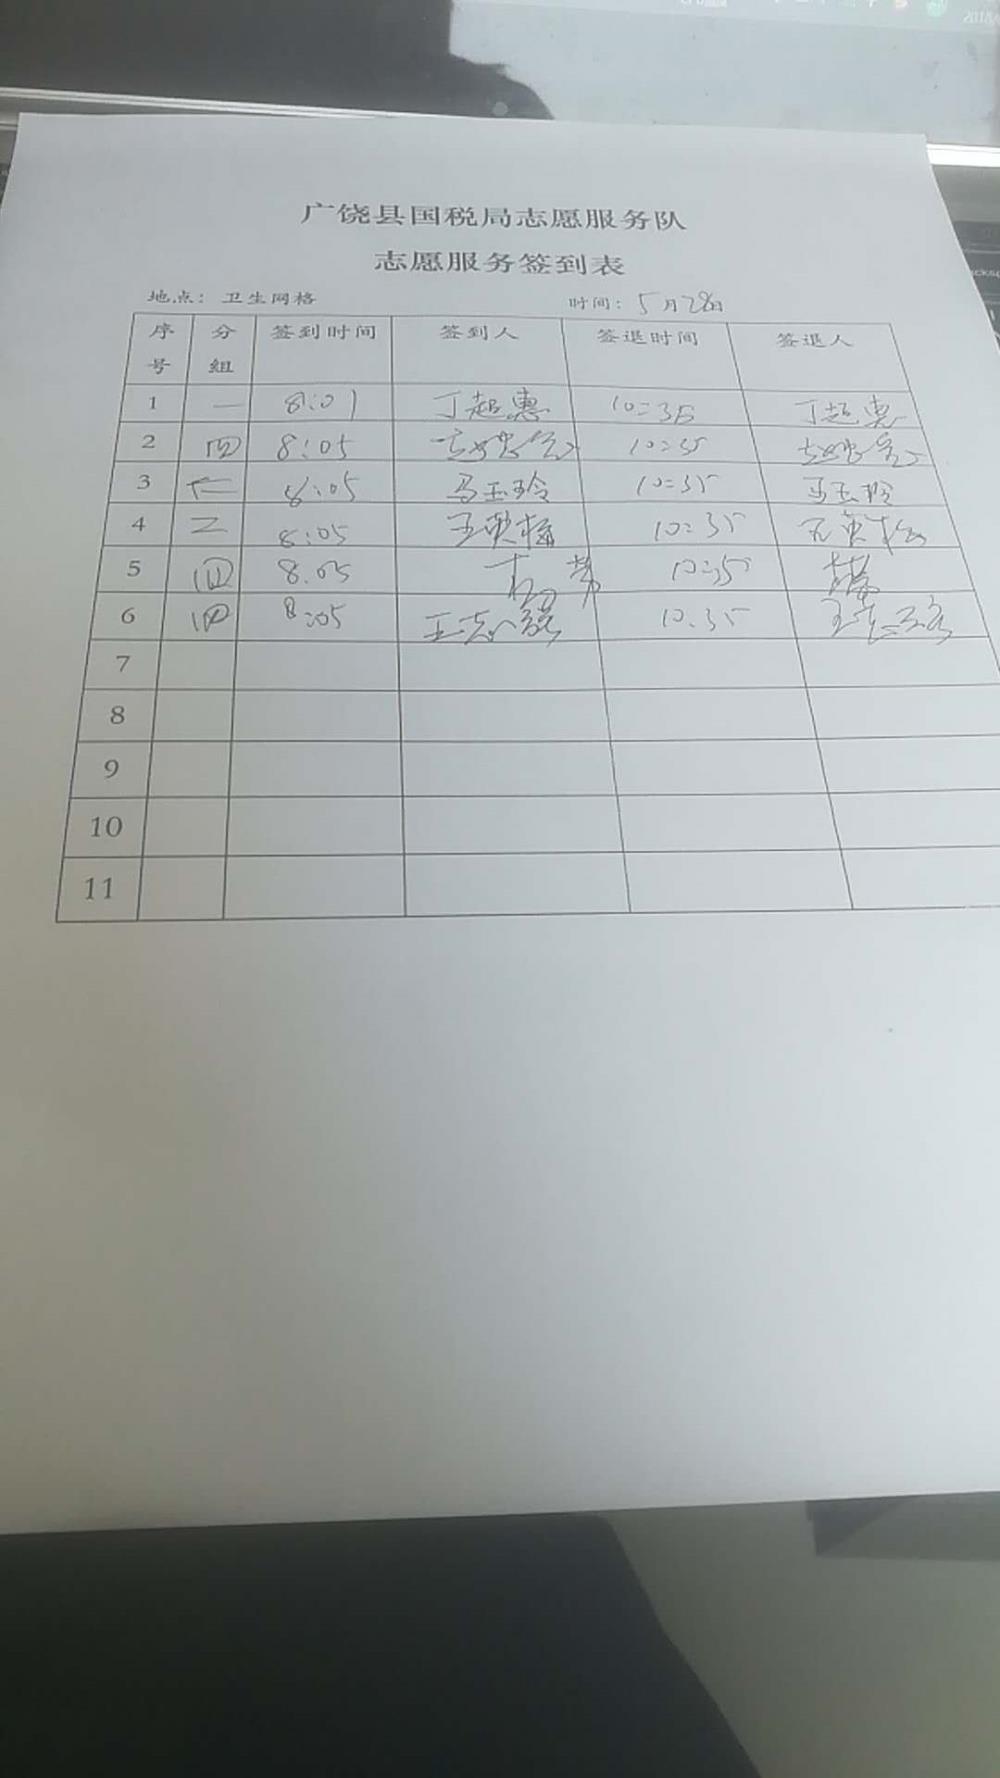 2018
广饶县国税局志愿服务队
志愿服务签到表
地点：卫生网格 时间：5月28日
序号 分组 签到时间 签到人 签退时间 签退人
1 一 8:01 丁超惠 10:35 丁超惠
2 四 8:05 10:35
3 8:05 马玉玲 10:35 马玉玲
4 二 8:05 王英梅 10:35 王英梅
5 四 8:05 10:35
6 四 8:05 王志强 10:35 王志强
7
8
9
10
11